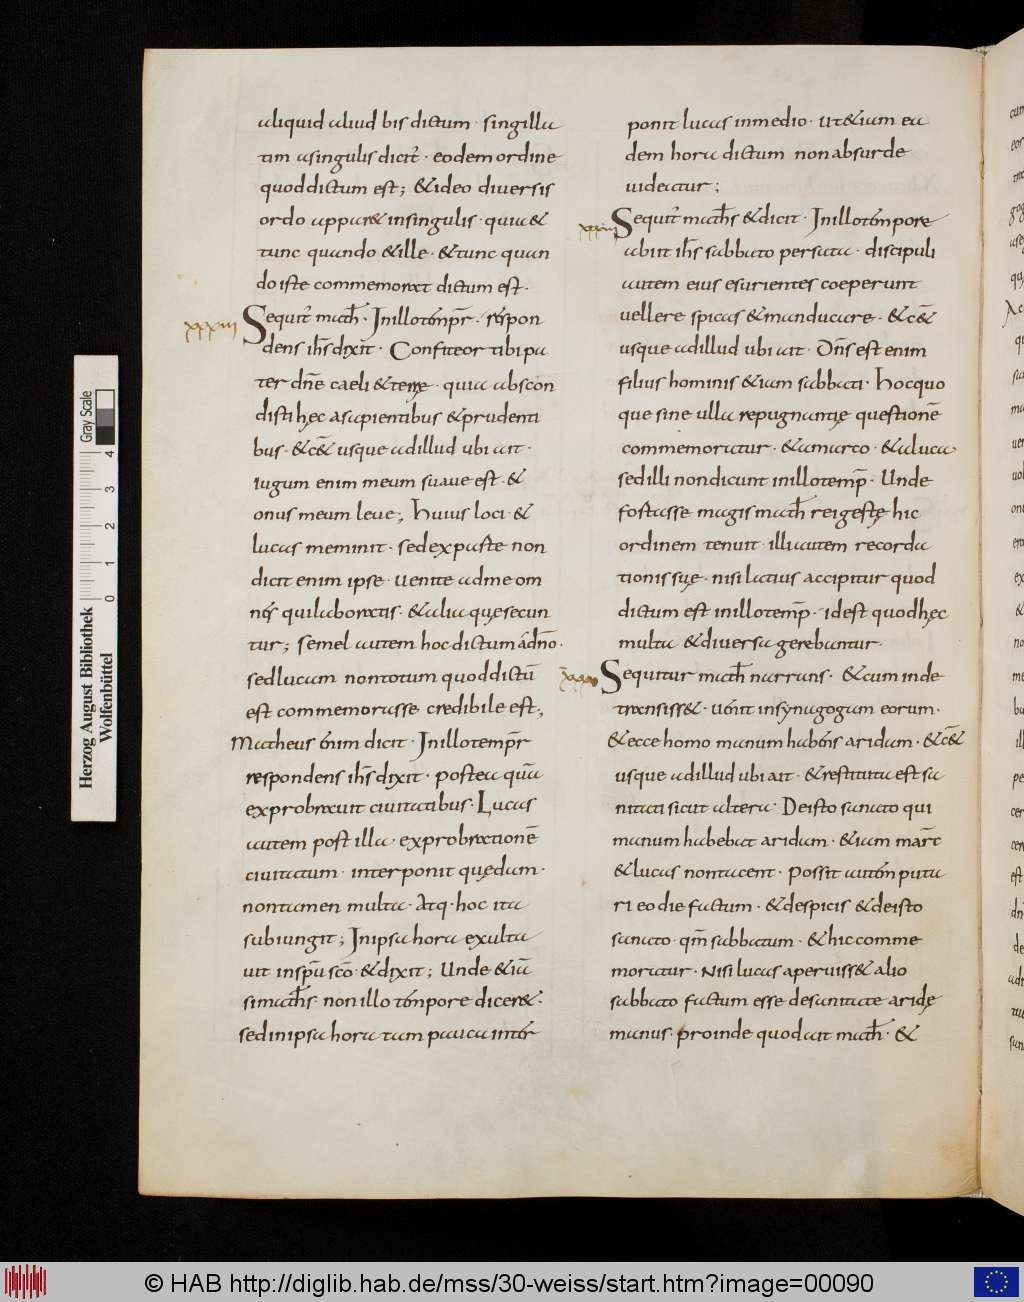 aliquid aliud bis dictum · singilla
tim asingulis dicit̃ · eodem ordine
quoddictum est; &ideo diuersis
ordo appar& insingulis · quia&
tunc quando &ille · &tunc quan
do iste commemorat dictum est ·
xxxiii Sequit̃ math̄ · Inillotẽmpr̄ · rẽspon
dens ih̄s dixit · Confiteor tibi pa
ter dn̄e caeli &terrę · quia abscon
disti hęc asapientibus &prudenti
bus · &cẽ& usque adillud ubi ait ·
iugum enim meum suaue est · &
onus meum leue; Huius loci · &
lucas meminit · sedexparte non
dicit enim ipse · uenite adme om
nẽs quilaboratis · &alia quęsecun
tur; semel autem hoc dictum addn̄o ·
sedlucam nontotum quoddictū
est commemorasse credibile est;
Matheus ẽnim dicit · Inillotempr̄
respondens ih̄s dixit · postea quā
exprobrauit ciuitatibus · Lucas
autem post illa exprobrationē
ciuitatum · interponit quędam ·
nontamen multa · Atq · hoc ita
subiungit; Inipsa hora exulta
uit inspū sc̄o · &dixit; Unde &iā
simath̄s · non illo tẽmpore dicer& ·
sedinipsa hora tam pauca intẽr
ponit lucas inmedio · ut&iam ea
dem hora dictum non absurde
uideatur;
xxxiiii Sequit̃ math̄s &dicit · Inillotẽmpore
abiit ih̄s sabbato persata · discipuli
autem eius esurientes coeperunt
uellere spicas &manducare · &cẽ&
usque adillud ubi ait · Dn̄s est enim
filius hominis &iam sabbati · Hocquo
que sine ulla repugnantię questionē
commemoratur · &amarco · &aluca
sedilli nondicunt inillotemp̄ · Unde
fortasse magis math̄ rei gestę hic
ordinem tenuit · illi autem recorda
tionis suę · nisi latius accipitur quod
dictum est inillotemp̄ · idest quodhęc
multa &diuersa gerebantur ·
xxxv Sequitur math̄ narrans · &cum inde
transiss& · uẽnit insynagogam eorum ·
&ecce homo manum habẽns aridam · &cẽ&
usque adillud ubi ait · &restituta est sa
nitati sicut altera · Deisto sanato qui
manum habebat aridam · &iam marc̄
&lucas nontacent · Possit autẽm puta
ri eo die factum · &despicis &deisto
sanato · qm̄ sabbatum · &hic comme
moratur · Nisi lucas aperuiss& alio
sabbato factum esse desanitate aridę
manus · proinde quod ait math̄ · &
Herzog August Bibliothek
Wolfenbüttel
0 1 2 3 4
Gray Scale
© HAB http://diglib.hab.de/mss/30-weiss/start.htm?image=00090